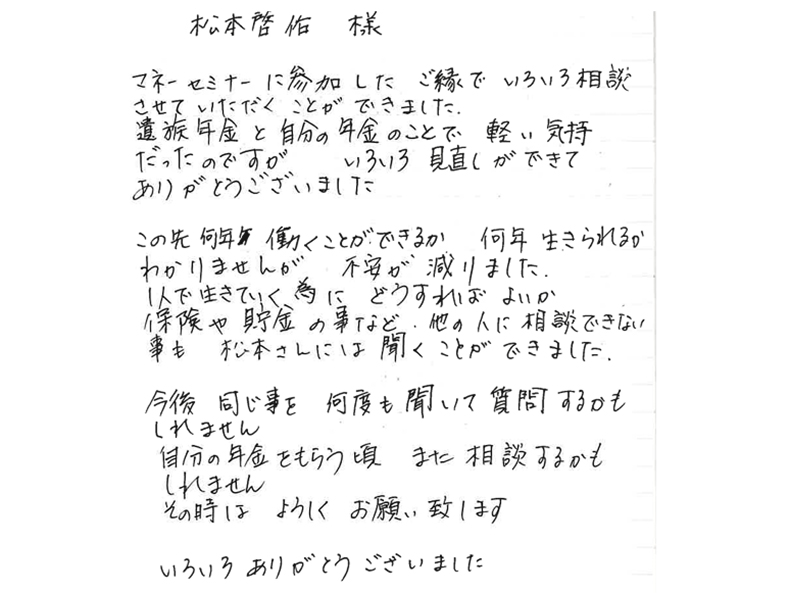 松本啓佑 様
マネーセミナーに参加した ご縁で いろいろ相談
させていただく ことが できました.
遺族年金と自分の年金のことで 軽い気持
だったのですが いろいろ 見直しができて
ありがとうございました
この先 何年 働くことができるか 何年 生きられるか
わかりませんが 不安が 減りました.
1人で生きていく為に どうすれば よいか
保険や貯金の事など. 他の人に相談できない
事も 松本さんには 聞くことが できました.
今後 同じ事を 何度も聞いて 質問するかも
しれません
自分の年金をもらう頃 また 相談するかも
しれません
その時は よろしく お願い致します
いろいろ ありがとう ございました